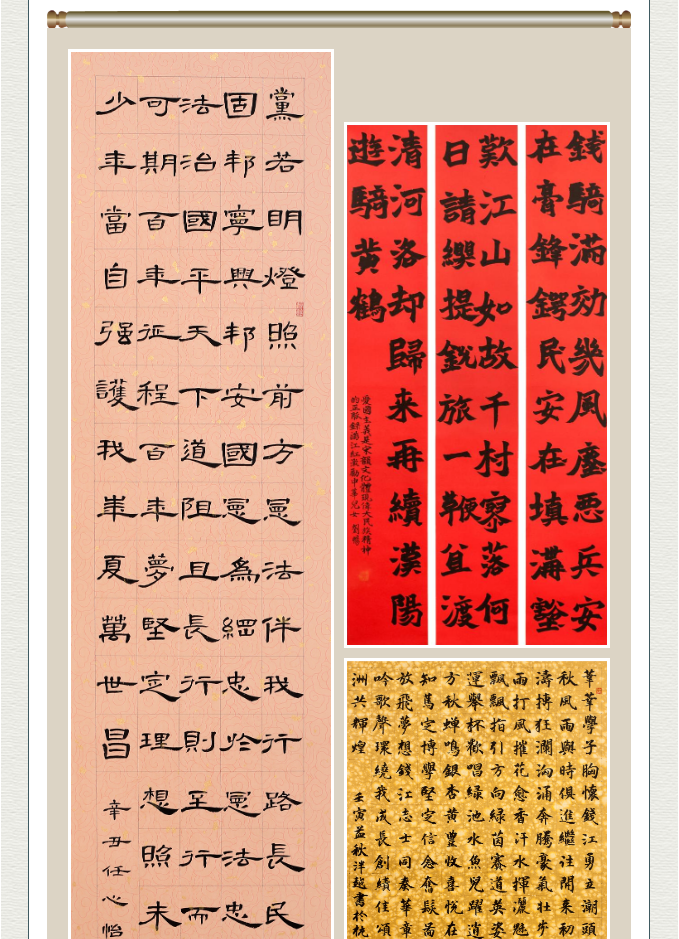 黨若明燈照前方憲法伴我行路長民
固邦寧興邦安國憲為綱忠於憲法忠
法治國平天下道阻且長行則至行而
可期百年征程百年夢堅定理想照未
少年當自强護我華夏萬世昌
辛丑任心怡
錢騎滿効幾風塵惡兵安
在膏鋒鍔民安在填溝壑
歎江山如故千村寥落何
日請纓提銳旅一鞭直渡
清河洛却歸来再續漢陽
遊騎黃鶴
莘莘學子胸懷錢江勇立潮頭
秋風雨與時俱進繼往開来初
濤搏狂瀾洶涌奔騰豪氣壮步
雨打風摧花愈香汗水揮灑魅
飄飄指引方向綠茵賽道英姿
運舉杯歡唱綠池水魚兒躍逍
方秋蝉鳴銀杏黃豐收喜悅在
知篤定博學堅定信念奮
放飛夢想錢江志士同奏華章
吟歌聲環繞我成長創績佳頌
洲共輝煌 壬寅 秋 書於杭